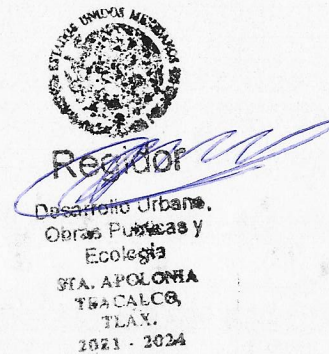 ESTADOS UNIDOS MEXICANOS
Regidor
Desarrollo Urbano,
Obras Publicas y
Ecologia
STA. APOLONIA
TEACALCO,
TLAX.
2021 - 2024